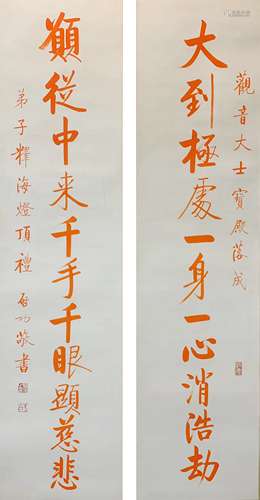 觀音大士寶殿落成
大到極處一身一心消浩劫
願從中来千手千眼顯慈悲
弟子釋海燈頂禮 启功敬書